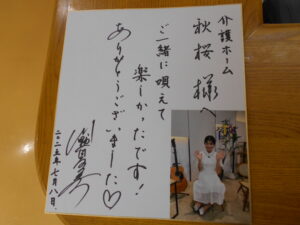 介護ホーム
秋桜様へ
ご一緒に唄えて
楽しかったです!
ありがとうござ
いました♡
二〇二五年七月八日。